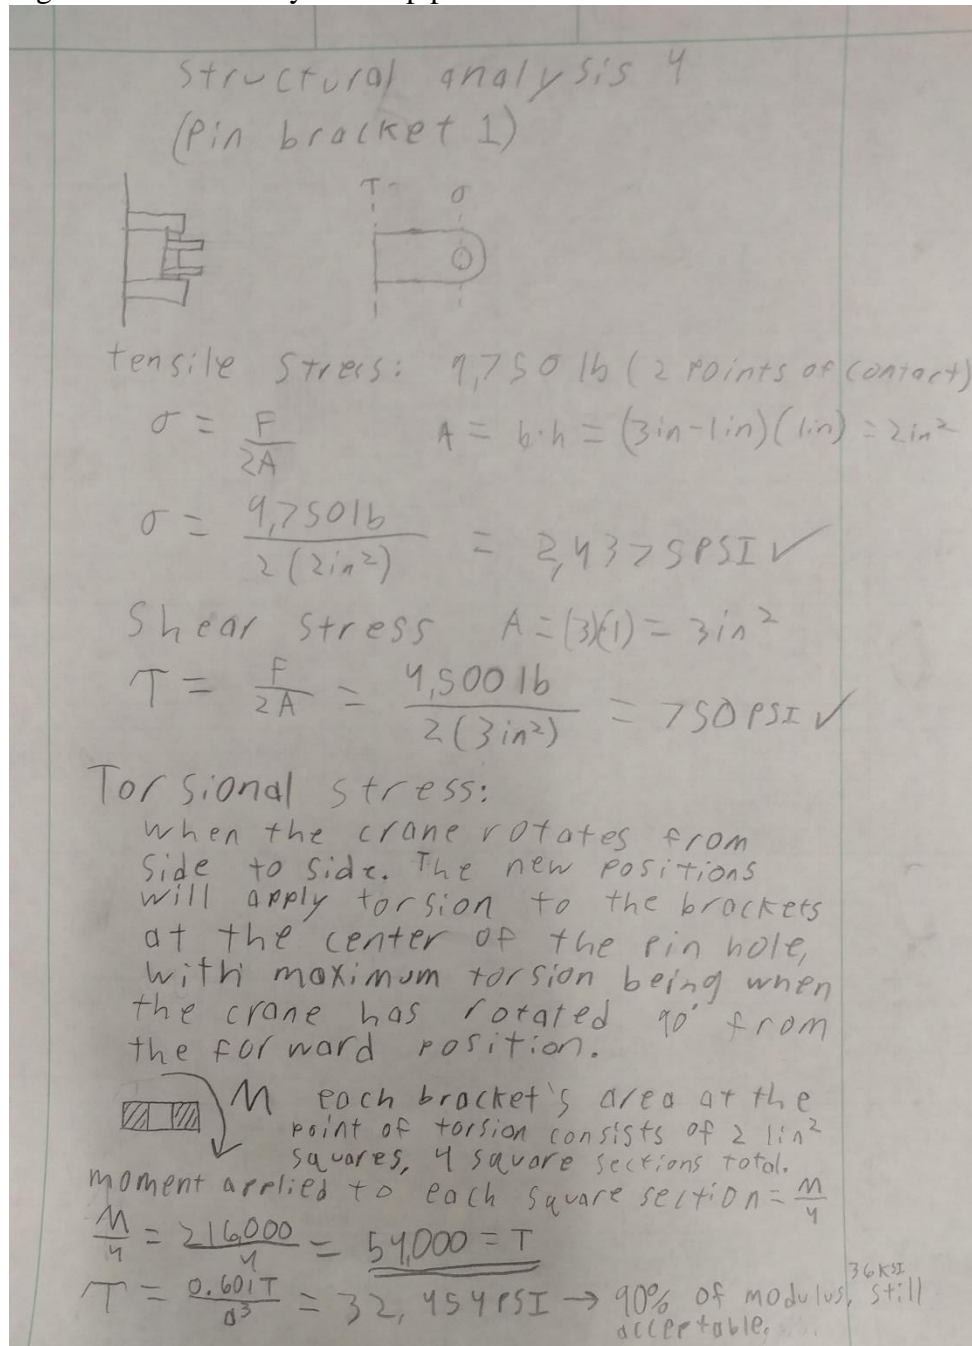 structural analysis 4
(Pin bracket 1)
T σ
tensile stress: 9,750 lb (2 points of contact)
σ = F/2A A = b·h = (3in-1in)(1in) = 2in²
σ = 9,750lb / 2(2in²) = 2,437.5 PSI ✓
Shear stress A = (3)(1) = 3in²
T = F/2A = 4,500 lb / 2(3in²) = 750 PSI ✓
Torsional stress:
when the crane rotates from
side to side. The new positions
will apply torsion to the brackets
at the center of the pin hole,
with maximum torsion being when
the crane has rotated 90° from
the forward position.
M each bracket's area at the
point of torsion consists of 2 1in²
squares, 4 square sections total.
moment applied to each square section = M/4
M/4 = 216,000/4 = 54,000 = T
T = 0.601T/a³ = 32,454 PSI → 90% of modulus, 36KSI still
acceptable.